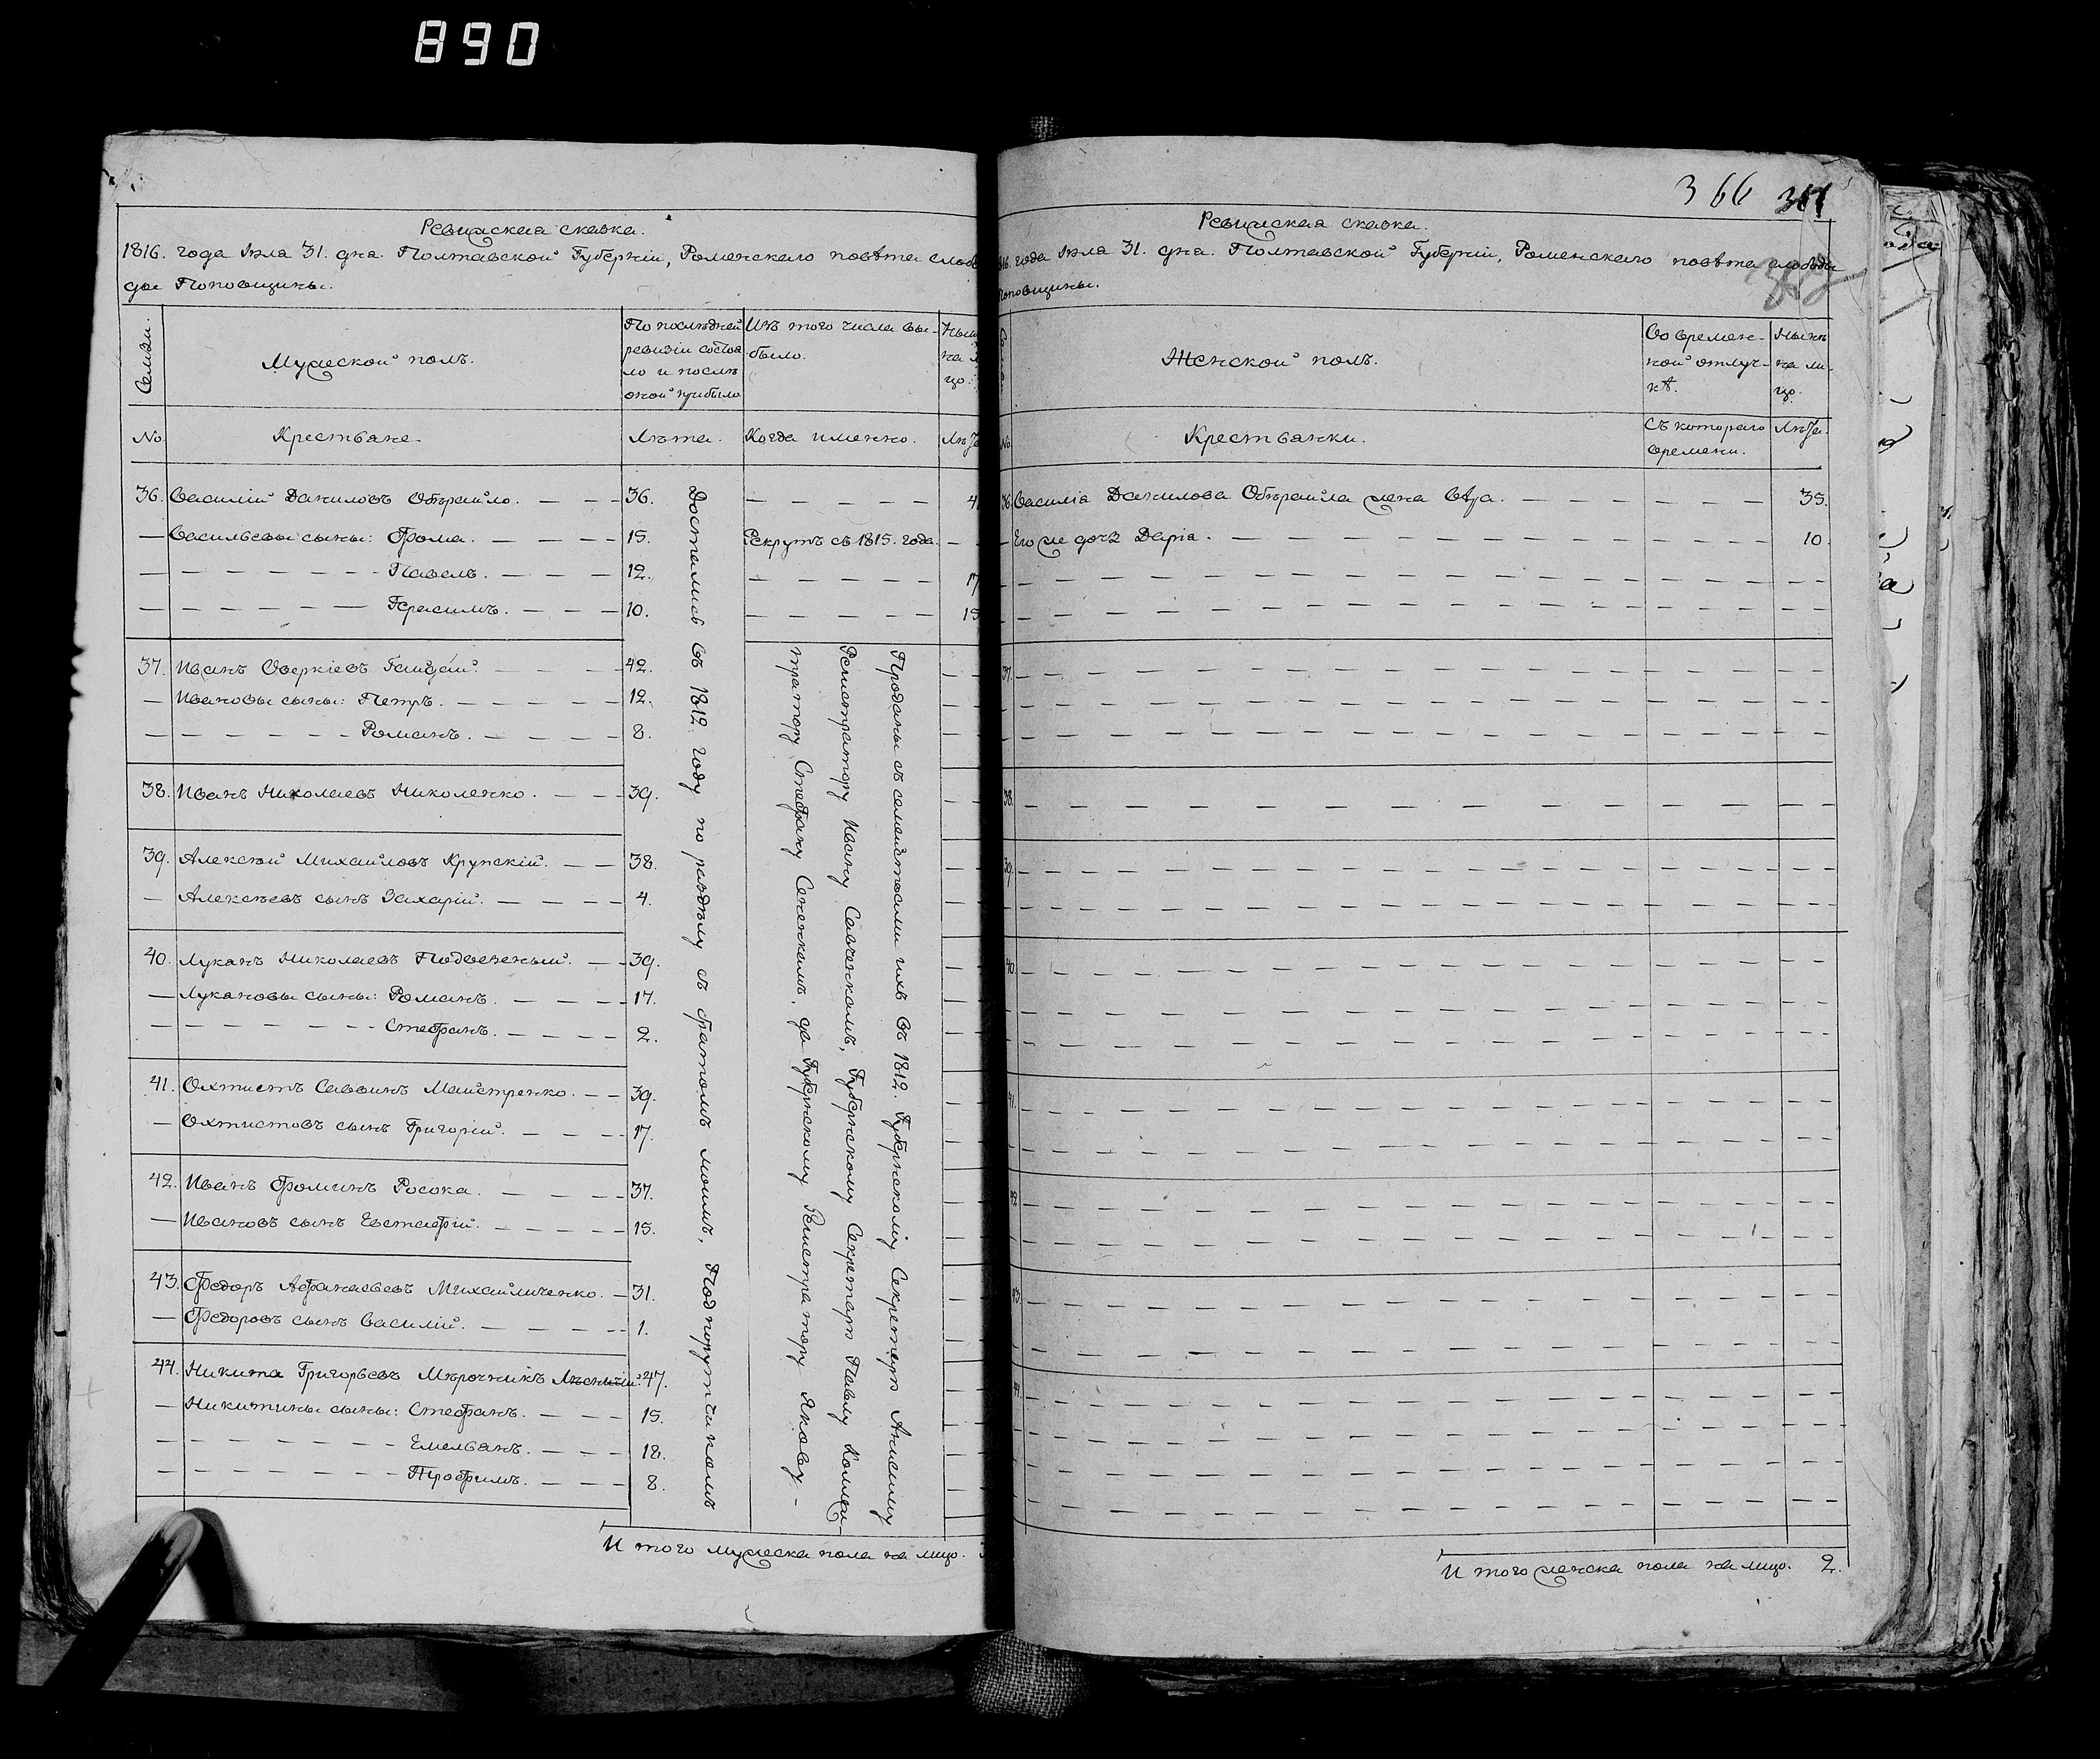 890
Ревижская сказка.
1816. года Мая 31. дня. Полтавской Губерніи, Роменскаго повѣта слобо
ды Поповщины.
Семьи.
Мужеской полъ.
По послѣдней
ревизіи состоя
ло и послѣ
оной прибыло
Изъ того числа вы-
было.
Ныне
на ли
цо.
№
Крестьяне.
Лѣта.
Когда именно.
Лѣта
36. Василій Даниловъ — — — 36. — — — — —
— Васильевы сыны: Фома. — — — — 15. Рекрутъ съ 1815. года. — —
— — — — — — — Павелъ. — — — 12. — — — — — 17
— — — — — — — Герасимъ. — — — 10. — — — — — 15
37. Иванъ Оверкіевъ — — — 42.
— Ивановы сыны: Петръ. — — — — 12.
— — — — — — Романъ. — — — — 8.
38. Иванъ Николаевъ Николенко. — — — 39.
39. Алексѣй Михайловъ Крупскій. — — 38.
— Алексѣевъ сынъ Захарій. — — — — 4.
40. Луканъ Николаевъ — — 39.
— Лукановы сыны: Романъ. — — — — 17.
— — — — — — — Стефанъ. — — — — 2.
41. Охтистъ Саввинъ Майстренко. — — 39.
— Охтистовъ сынъ Григорій. — — — — 17.
42. Иванъ Фоминъ Росока. — — — — 37.
— Ивановъ сынъ Евстафій. — — — — 15.
43. Федоръ Афанасьевъ Михайличенко. — 31.
— Федоровъ сынъ Василій. — — — — 1.
44. Никита Григорьевъ Мѣрочникъ 47.
— Никитины сыны: Стефанъ. — — — 15.
— — — — — — — Емельянъ. — — — 18.
— — — — — — — Трофимъ. — — — 8.
Достались въ 1812 году по раздѣлу съ братомъ моимъ, Подпорутчикомъ
Проданы съ семействами ихъ въ 1812. Губернскому Секретарю Анисиму
Регистратору Ивану Савченкамъ, Губернскому Секретарю Павлу Коллеж-
тратору Стефану Сененкамъ, да Губернскому Регистратору Якову -
И того мужеска пола на лицо.
366
Ревижская сказка.
года Мая 31. дня. Полтавской Губерніи, Роменскаго повѣта слободы
Поповщины.
Женской полъ.
Во времен-
ной отлуч-
кѣ.
Нынѣ
на ли-
цо.
№
Крестьянки.
Съ котораго
времени.
Лѣта.
36. Василія Данилова жена — — — — — — — 35.
— Его же дочь Дарія. — — — — — — — 10.
37.
38.
39.
40.
41.
42.
43.
44.
И того женска пола на лицо. 2.